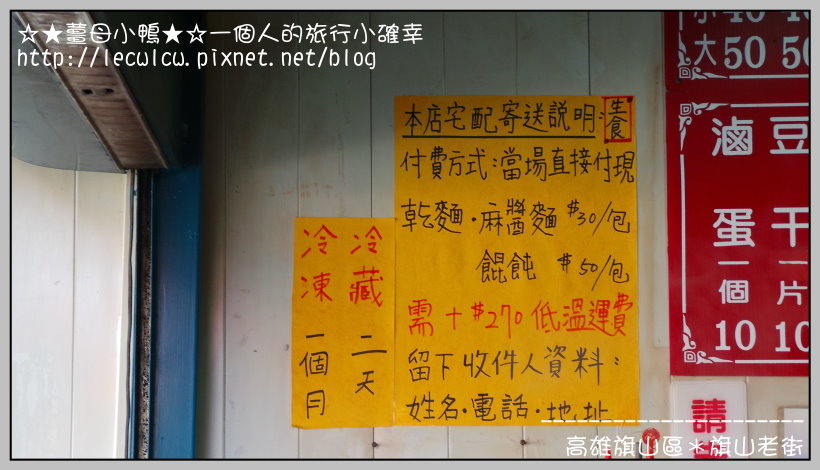 ☆★薑母小鴨★☆一個人的旅行小確幸
http://lecwlcw.pixnet.net/blog
本店宅配寄送說明:生食
付費方式:當場直接付現
乾麵·麻醬麵 $30/包
餛飩 $50/包
需+$270低溫運費
留下收件人資料:
姓名·電話·地址
冷藏 二天
冷凍 一個月
小 40 40
大 50 50
滷蛋 一個 10
豆干 一片 10
請
高雄旗山區＊旗山老街